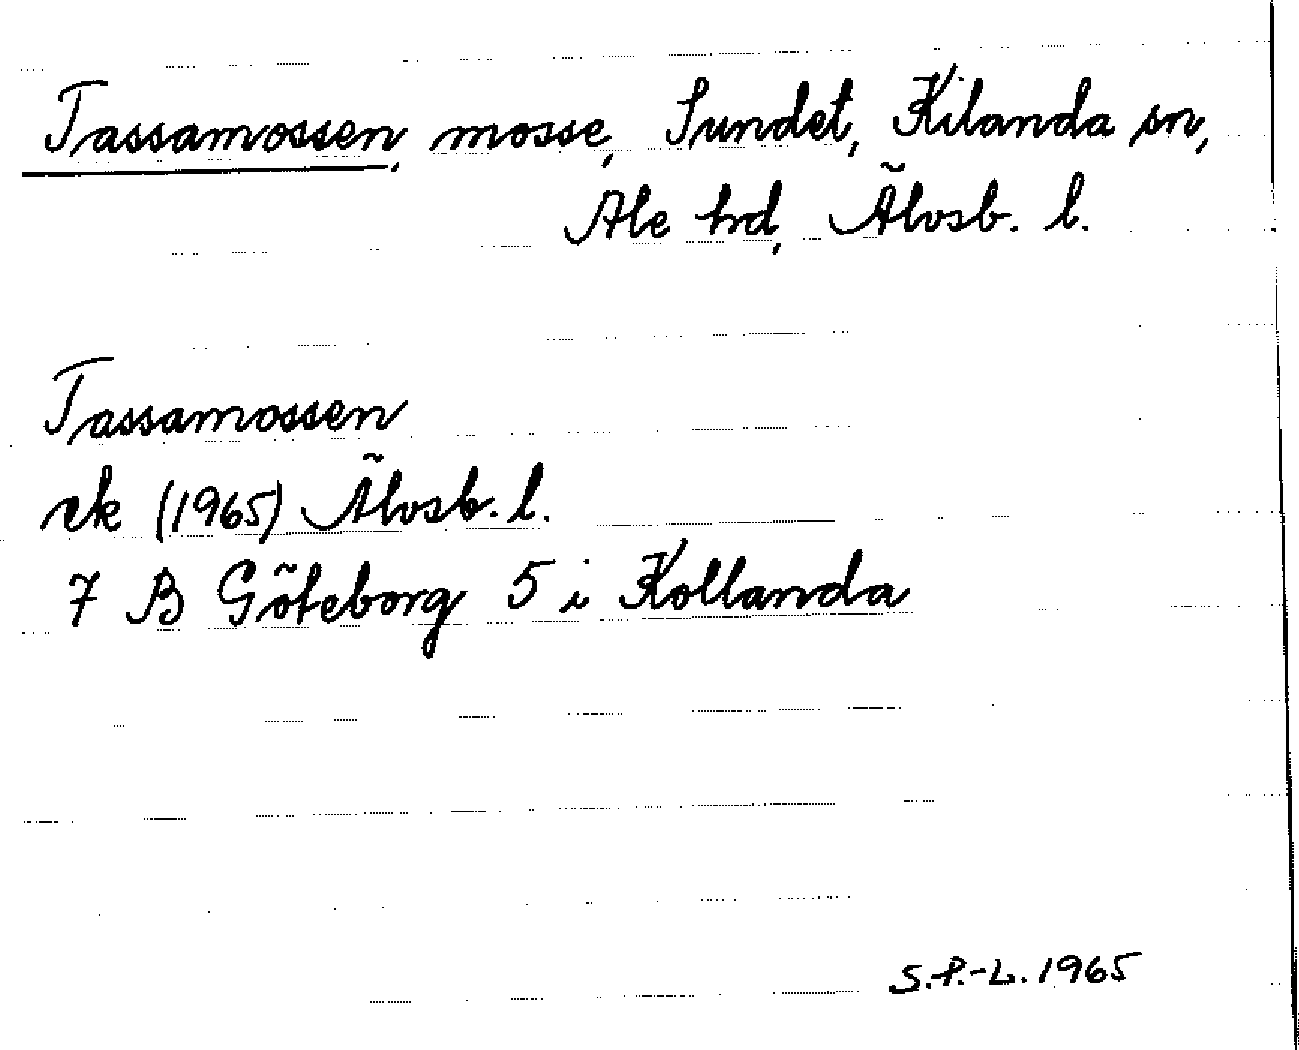 Tassamossen, mosse, Sundet, Kilanda sn,
Ale hd, Älvsb. l.
Tassamossen
ek (1965) Älvsb. l.
7 B Göteborg 5 i Kollanda
S.P.-L. 1965